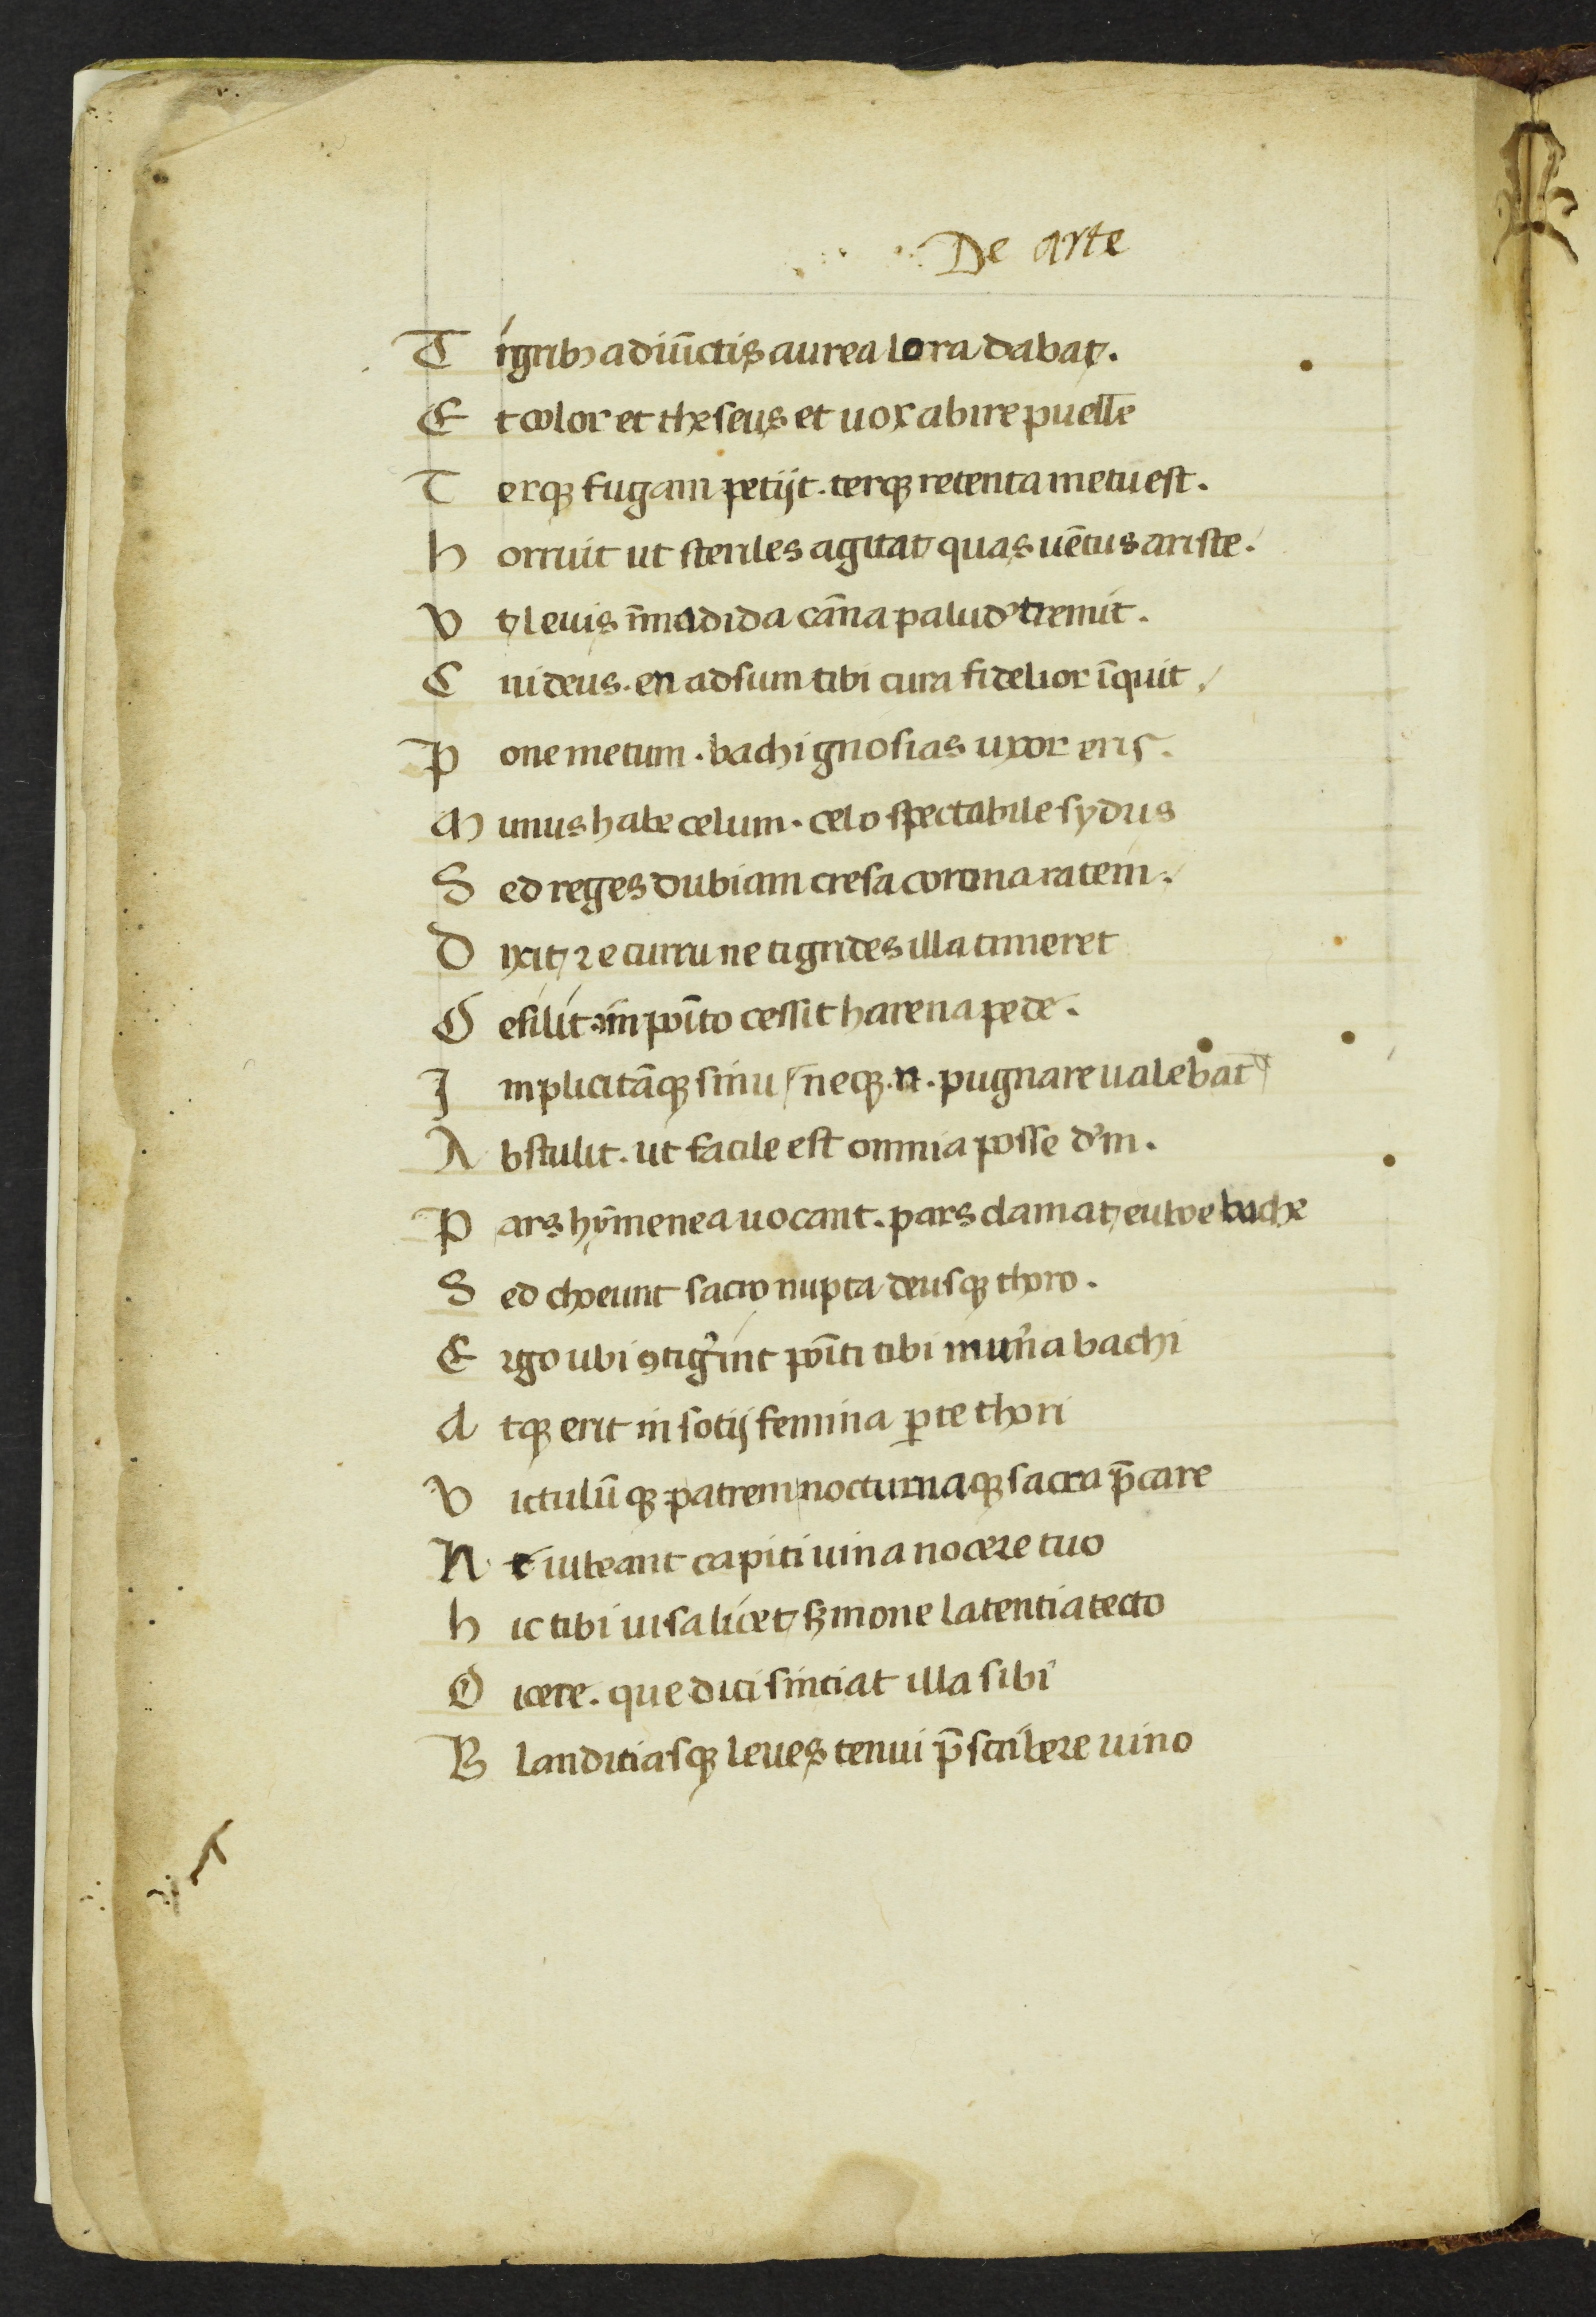 De arte
T igribꝫ adiūctis aurea lora dabat.
E t color et theseus et uox abire puelle
T erqꝫ fugam petijt. terqꝫ retenta metu est.
h orruit ut steriles agitat quas uētus ariste.
V t leuis ī madida cāna palude tremit.
C ui deus. en adsum tibi cura fidelior īquit
P one metum. bachi gnosias uxor eris.
M unus habe celum. celo spectabile sydus
S ed reges dubiam cresa corona ratem.
D ixit / ⁊ e curru ne tigrides illa timeret
D esilit. īposito cessit harena pede.
I mplicitāqꝫ sinu neqꝫ .n. pugnare ualebat
A bstulit. ut facile est omnia posse dm̄.
P ars hymenea uocant. pars clamat euhoe bache
S ed choeunt sacro nupta deusqꝫ thoro.
E rgo ubi ꝯtigīnt poīti tibi mun̄a bachi
A tqꝫ erit in sotij femina ꝑte thori
V ictulūqꝫ patrem nocturnaqꝫ sacra p̄care
N e iubeant capiti uina nocere tuo
h ic tibi uisa licet sꝫmone latentia tecto
D icere. que dici sintiat illa sibi
B landitiasqꝫ leues tenui p̄scribere uino